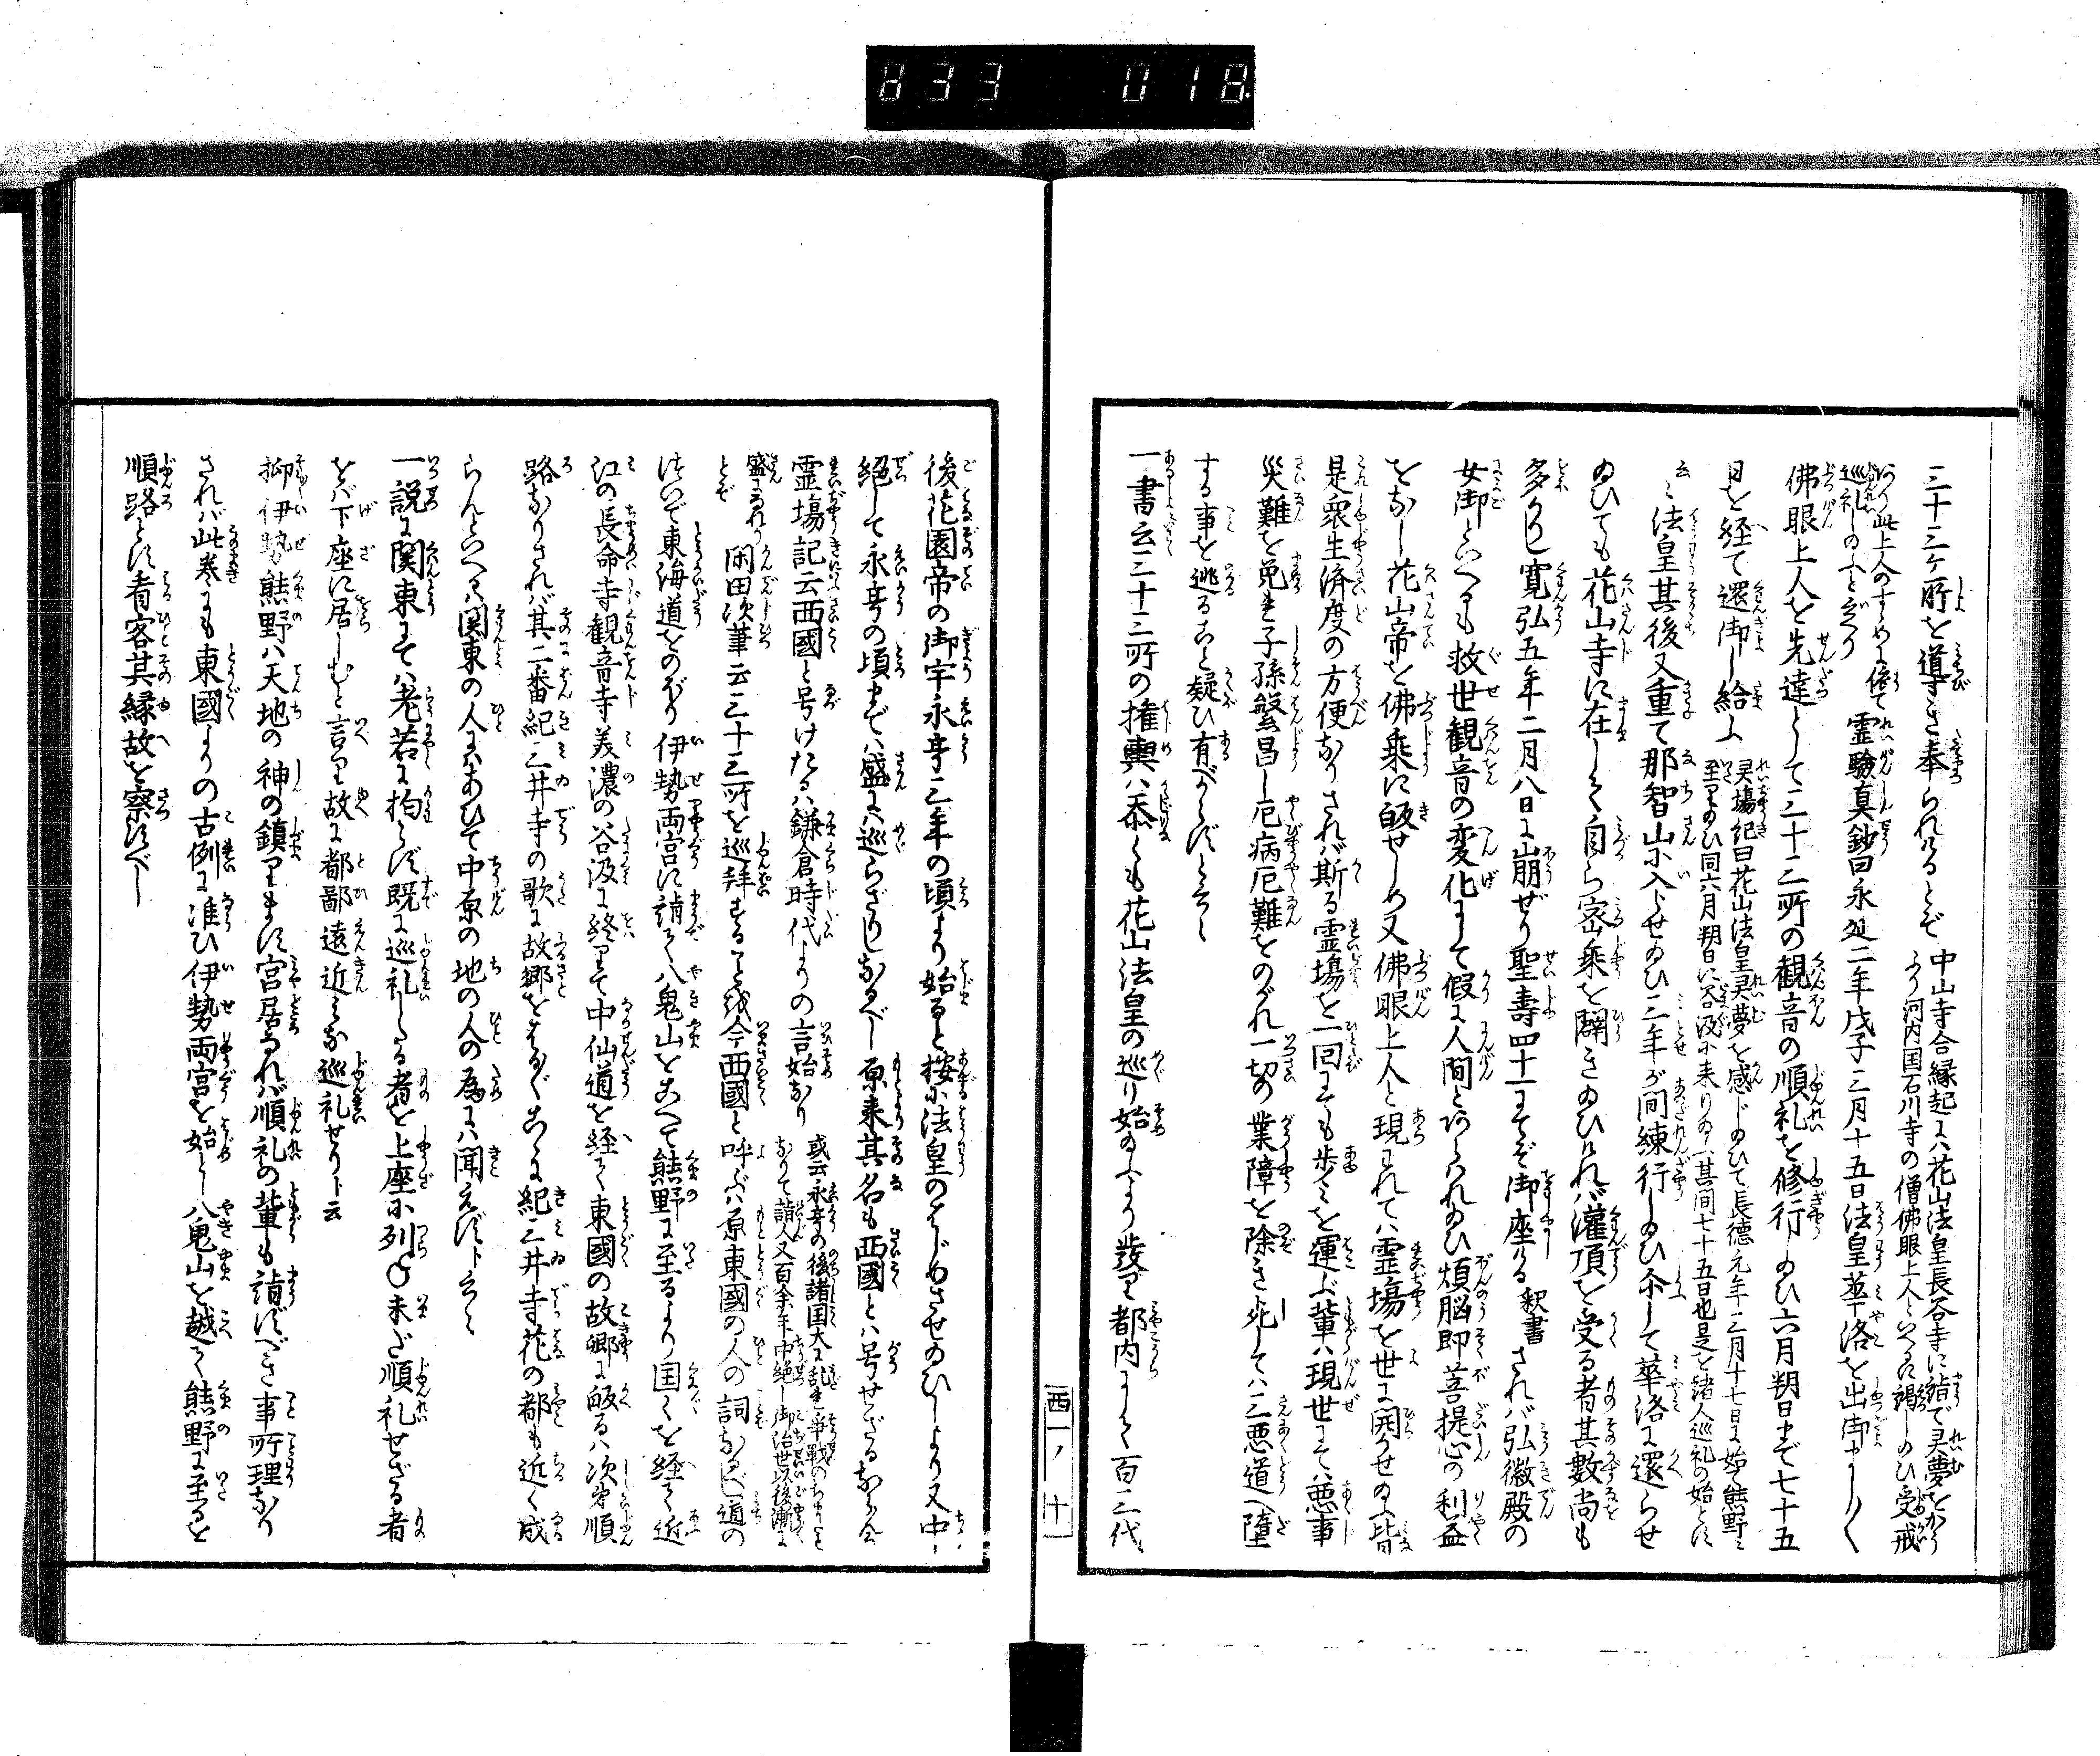 833 018
三十三ケ所を導き奉られけるとぞ 中山寺合縁起には花山法皇長谷寺に詣で霊夢をかう
ふり河内国石川寺の僧佛眼上人といへるに謁し給ひ受戒
あり此上人のすゝめに依て
巡礼し給ふとぞ 霊驗真鈔曰永延二年戊子三月十五日法皇並下洛を出御まし〳〵
佛眼上人を先達として三十三所の観音の順礼を修行し給ひ六月朔日まで七十五
日を経て還御し給ふ 灵場記曰花山法皇灵夢を感じ給ひて長徳元年三月十七日に始て熊野に
至り給ひ同六月朔日に谷汲に来り給ふ其間七十五日也是を諸人巡礼の始とす
云々法皇其後又重て那智山に入らせ給ひ三年が間練行し給ひ而して華洛に還らせ
給ひても花山寺に在して自ら密乗を闢き給ひければ灌頂を受る者其數尚も
多かりし寛弘五年二月八日に崩ぜり聖壽四十一にぞ御座ける 釈書 されば弘徽殿の
女御といへるも救世観音の変化にて假に人間とあらはれ給ひ煩脳即菩提心の利益
をなし花山帝を佛乗に皈せしめ又佛眼上人と現れては霊場を世に開かせ給ふ皆
是衆生済度の方便なりされば斯る霊場を一回にても歩みを運ぶ輩は現世にては悪事
災難を免れ子孫繁昌し厄病厄難をのがれ一切の業障を除き死しては三悪道へ墮
する事を逃るゝこと疑ひ有べからずと云々
一書云三十三所の権輿は忝くも花山法皇の巡り始給ふより發り都内にして百三代
西一ノ十
後花園帝の御宇永享三年の頃より始ると按に法皇のはじめさせ給ひしより又中
絶して永享の頃までは盛には巡らざりしなるべし原来其名も西國とは号せざるなるべし
霊場記云西國と号けたるは鎌倉時代よりの言始なり 或云永享の後諸国大に乱れ争戦のちまたと
なりて諸人又百余年中絶し御治世以後漸々
盛になれり
とぞ 閑田次筆云三十三所を巡拝することを今西國と呼ぶは原東國の人の詞なるべし道の
次いで東海道をのぼり伊勢両宮に詣で八鬼山をこへて熊野に至るより国々を経て近
江の長命寺観音寺美濃の谷汲に終りて中仙道を経て東國の故郷に皈るは次第順
路なりされば其二番紀三井寺の歌に故郷をはる〴〵こゝに紀三井寺花の都も近く成
らんといへるは関東の人にあひて中原の地の人の為には聞えずト云々
一説に関東にては老若に拘らず既に巡礼したる者を上座に列ね未だ順礼せざる者
をば下座に居しむと言り故に都鄙遠近みな巡礼せりト云
抑伊勢熊野は天地の神の鎮りまします宮居なれば順礼の輩も詣ずべき事所理なり
されば此巻にも東國よりの古例に准ひ伊勢両宮を始とし八鬼山を越て熊野に至るを
順路とす看客其縁故を察すべし